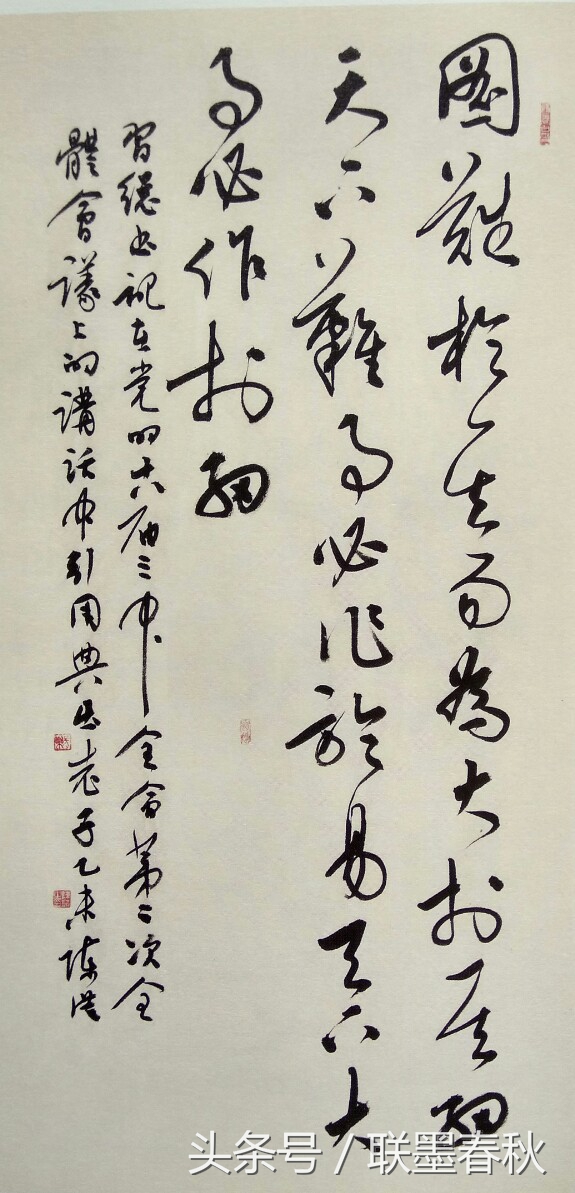 圖難於其易為大於其細
天下難事必作於易天下大
事必作於細
習總书記在党的十八届三中全會第二次全
體會議上的講話中引用典出老子乙未陳
头条号／联墨春秋